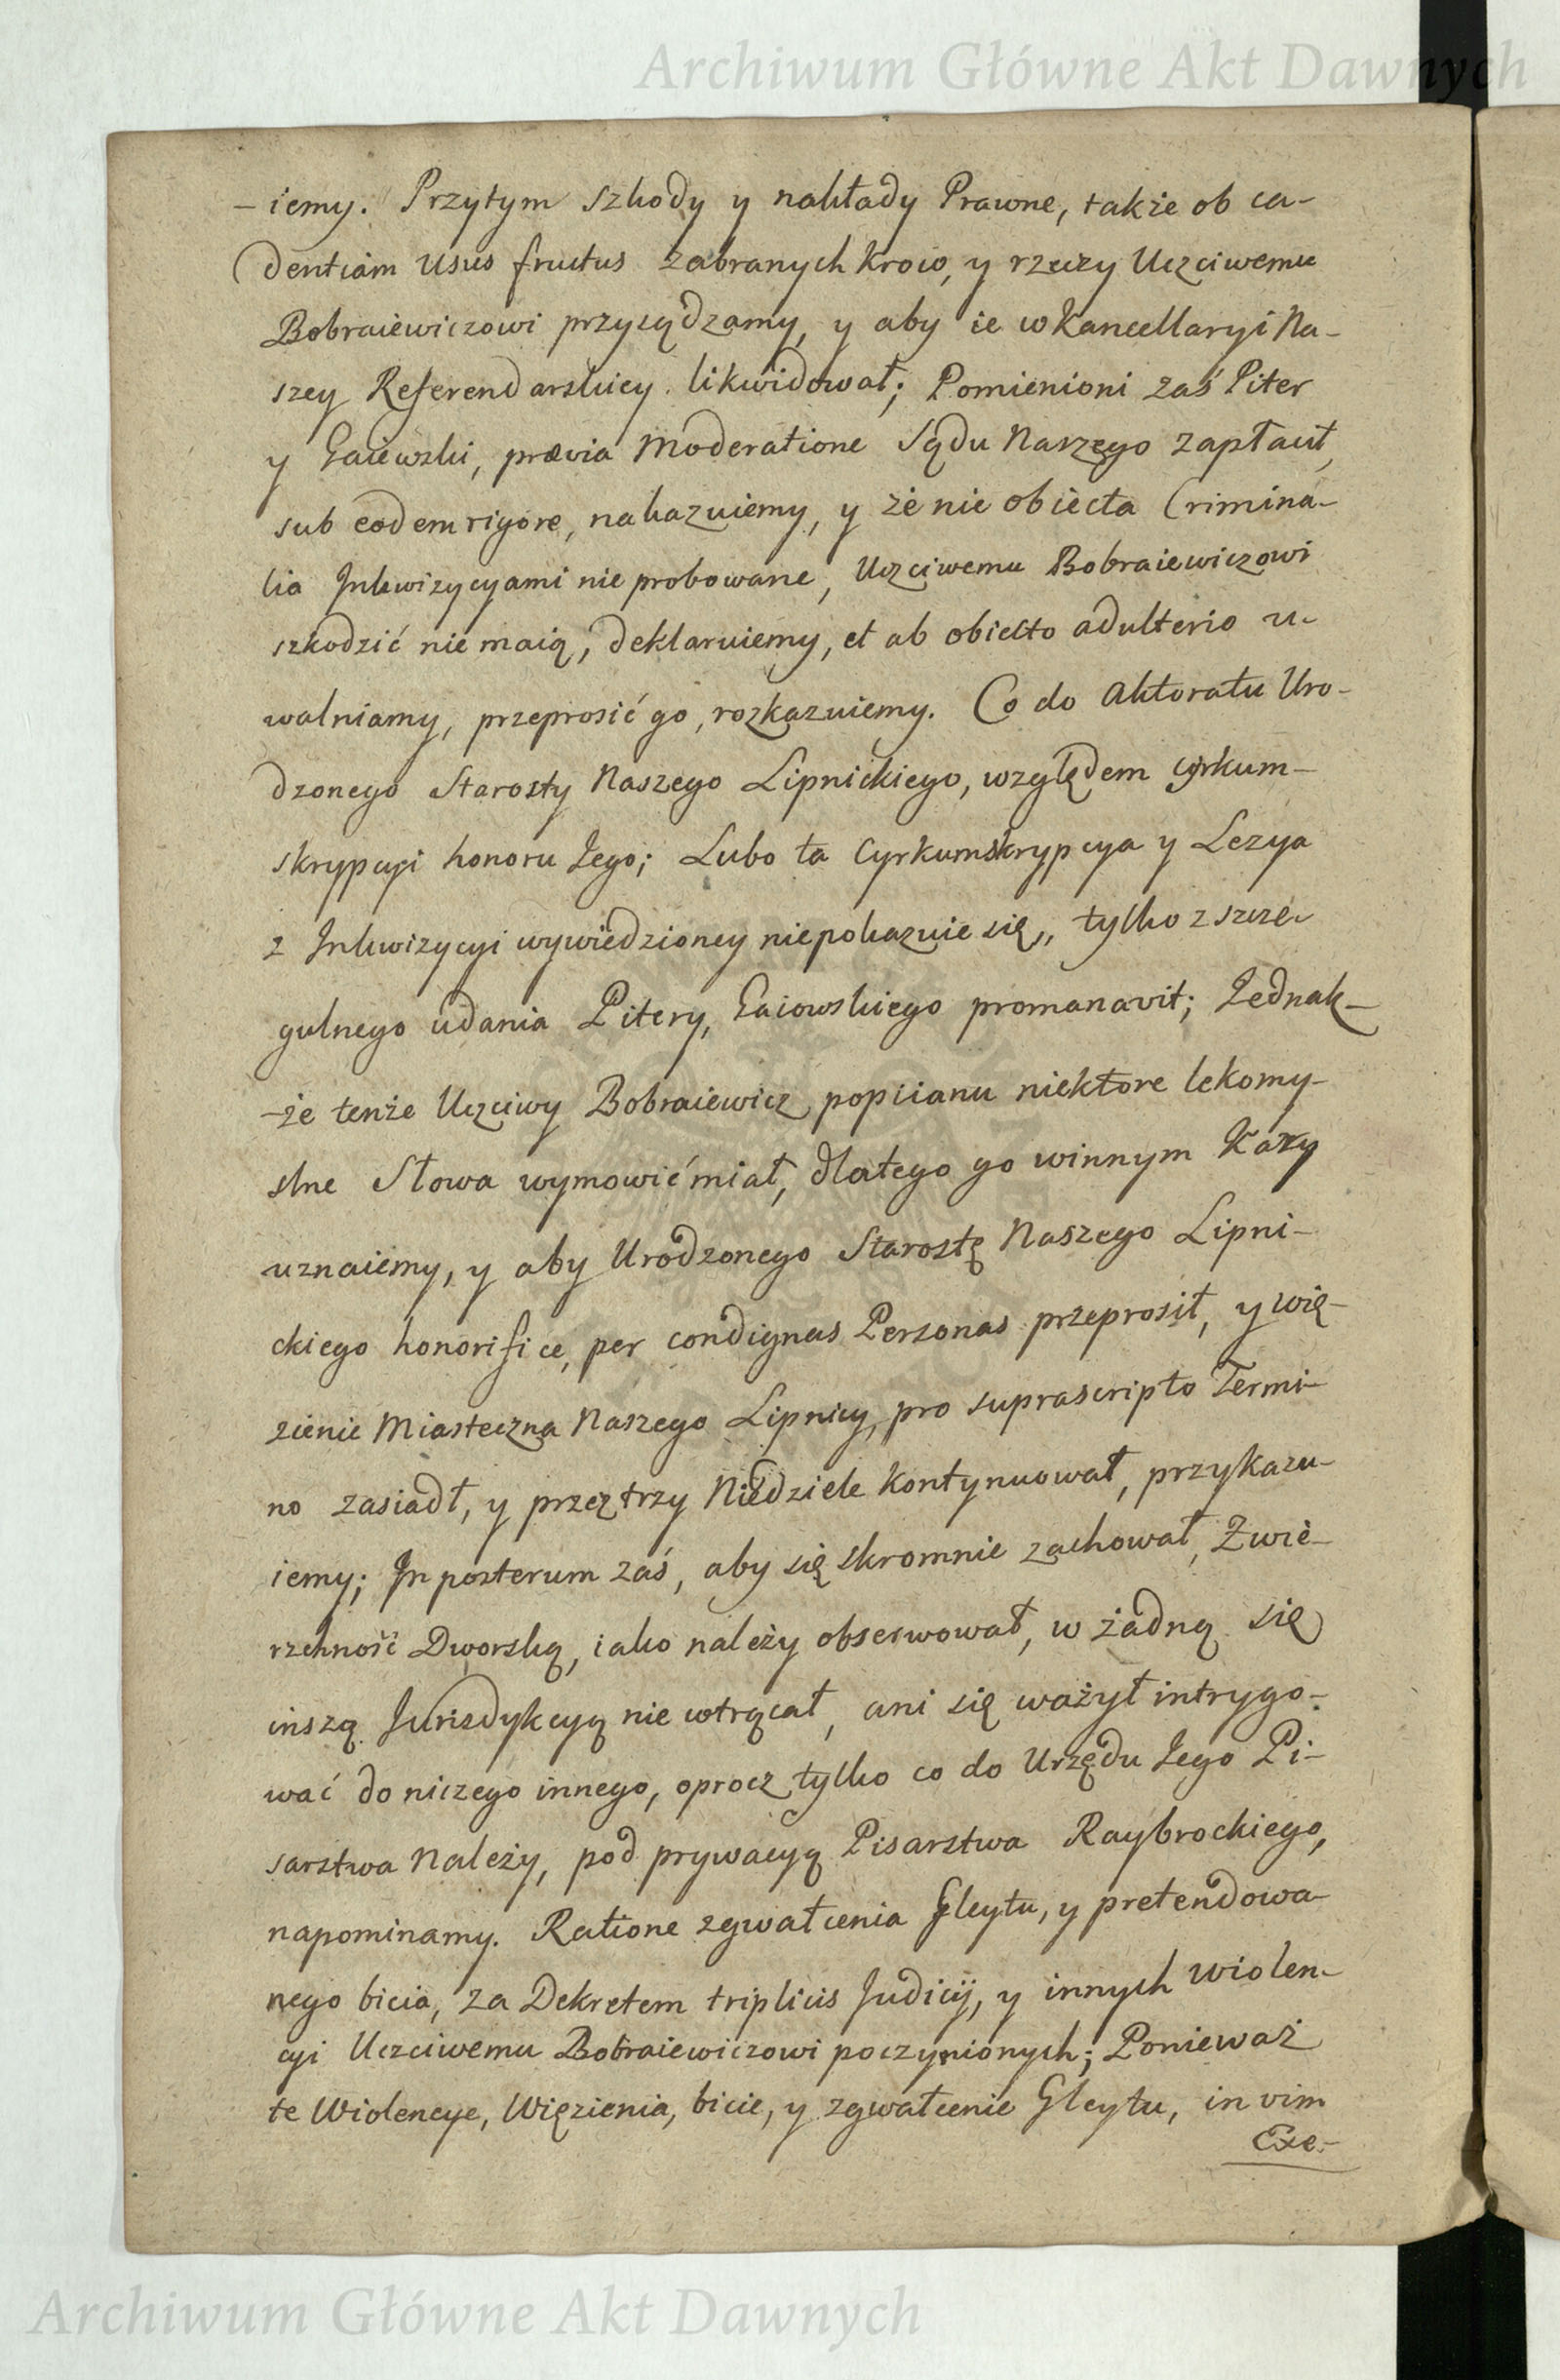 Archiwum Główne Akt Dawnych
– iemy. Przytym szkody y nakłady Prawne, także ob ca-
dentiam usus fructus zabranych krow, y rzeczy Uczciwemu
Bobraiewiczowi przysądzamy, y aby ie w Kancellaryi Na-
szey Referendarskiey likwidował; Pomienioni zaś Piter
y Gaiewski, prævia Moderatione Sądu Naszego zapłacił,
sub eodem rigore, nakazuiemy, y że nie obiecta Crimina-
lia Inkwizycyami nie probowane, Uczciwemu Bobraiewiczowi
szkodzić nie maią, deklaruiemy, et ab obiecto adulterio u-
walniamy, przeprosić go, rozkazuiemy. Co do Aktoratu Uro-
dzonego Starosty Naszego Lipnickiego, względem cyrkum-
skrypcyi honoru Jego; Lubo ta Cyrkumskrypcya y Lezya
z Inkwizycyi wywiedzioney niepokazuie się, tylko z szcze-
gulnego udania Pitery, Gaiowskiego promanavit; Jednak-
-że tenże Uczciwy Bobraiewicz popiianu niektore lekomy-
slne Słowa wymowić miał, dlatego go winnym Kary
uznaiemy, y aby Urodzonego Starostę Naszego Lipni-
ckiego honorifice, per condignas Personas przeprosił, y wię-
zienie Miasteczna Naszego Lipnicy, pro suprascripto Termi-
no zasiadł, y przez trzy Niedziele kontynuował, przykazu-
iemy; In posterum zaś, aby się skromnie zachował, Zwie-
rzchność Dworską, iako należy obserwował, w żadną się
inszą Jurisdykcyą nie wtrącał, ani się ważył intrygo-
wać do niczego innego, oprocz tylko co do Urzędu Jego Pi-
sarstwa należy, pod prywacyą Pisarstwa Raybrockiego,
napominamy. Ratione zgwałcenia Gleytu, y pretendowa-
nego bicia, za Dekretem triplicis Judicij, y innych wiolen-
cyi Uczciwemu Bobraiewiczowi poczynionych; Ponieważ
te Wiolencye, Więzienia, bicie, y zgwałcenie Gleytu, in vim
Exe-
Archiwum Główne Akt Dawnych